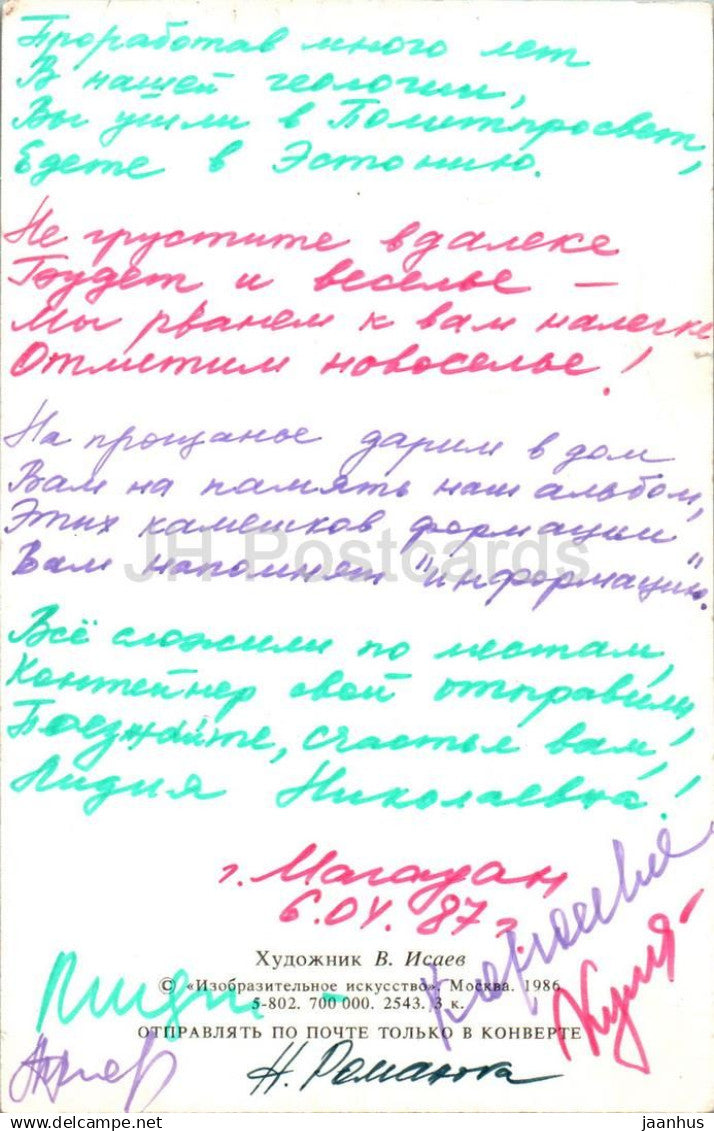 Проработав много лет
В нашей геологии,
Вы ушли в Политпросвет,
Едете в Эстонию.
Не грустите вдалеке
Будет и веселье –
Мы рванем к вам налегке
Отметим новоселье!
На прощанье дарим в дом
Вам на память наш альбом,
Этих камешков формации
Вам напомнят "информацию".
JH Postcards
Всё сложили по местам,
Контейнер свой отправили,
Поезжайте, счастья вам,
Лидия Николаевна!
г. Магадан
6.04.87 г.
Художник В. Исаев
© «Изобразительное искусство». Москва. 1986
5-802. 700 000. 2543. 3 к.
ОТПРАВЛЯТЬ ПО ПОЧТЕ ТОЛЬКО В КОНВЕРТЕ
Н. Романова
jaanhus